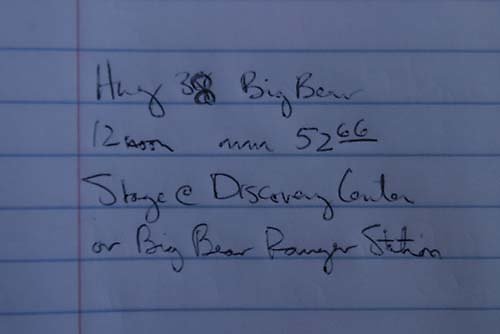 Hwy 38 Big Bear
12 noon mmm 52 66
Stage @ Discovery Center
or Big Bear Ranger Station